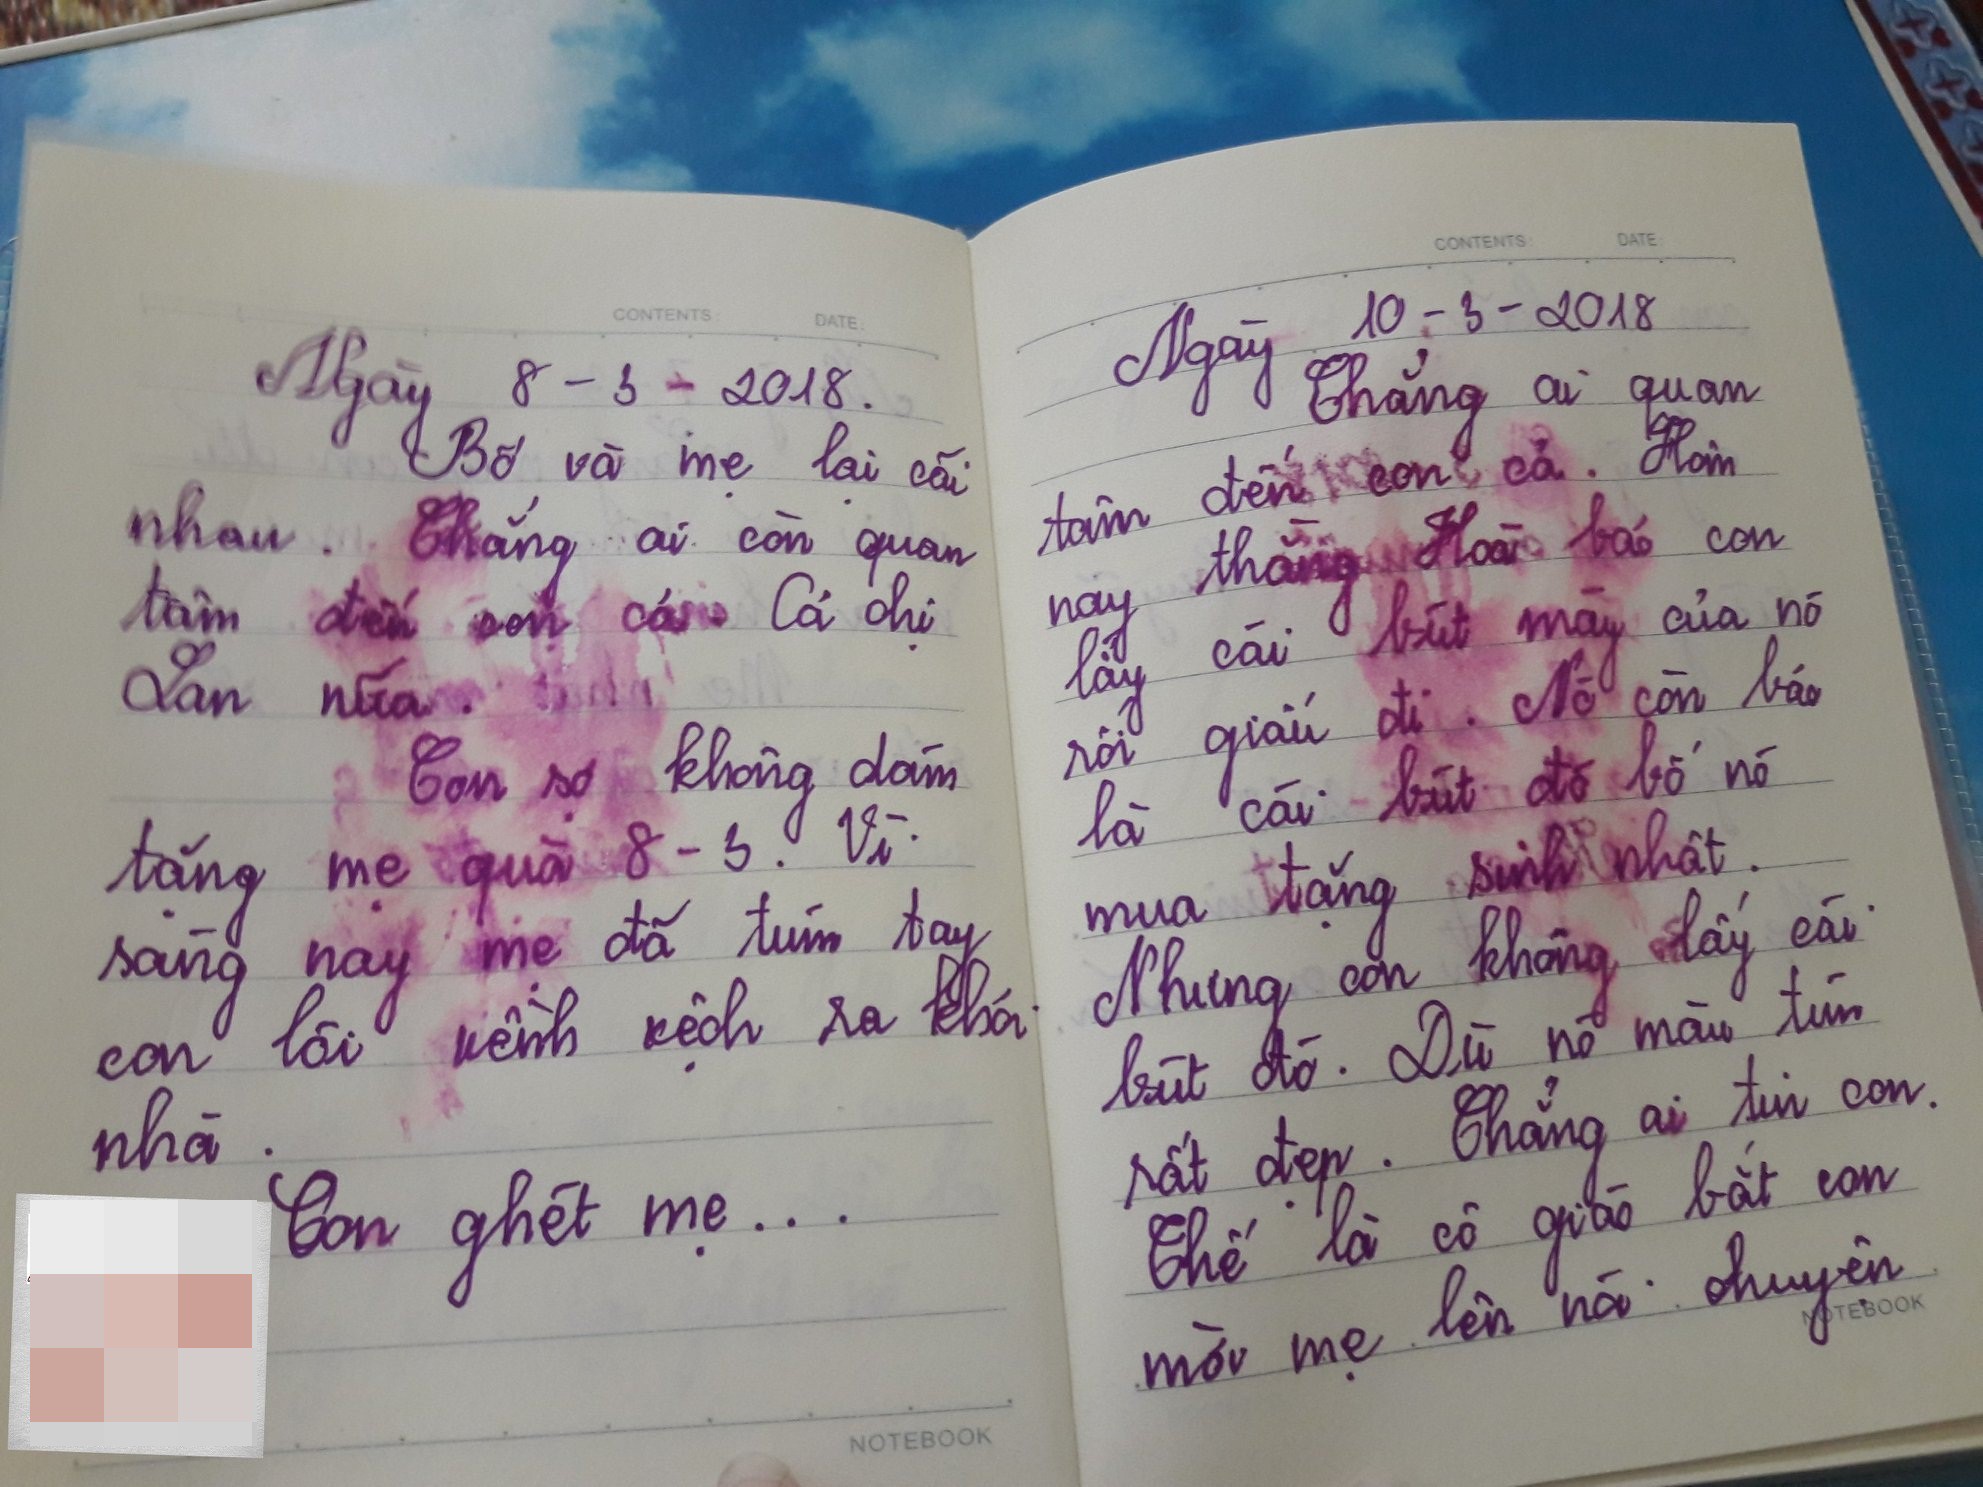 CONTENTS: DATE:
Ngày 8-3-2018.
Bố và mẹ lại cãi
nhau. Chẳng ai còn quan
tâm đến con cả. Cả chị
Lan nữa.
Con sợ không dám
tặng mẹ quà 8-3. Vì
sáng nay mẹ đã túm tay
con lôi xềnh xệch ra khỏi
nhà.
Con ghét mẹ...
NOTEBOOK
CONTENTS: DATE:
Ngày 10-3-2018
Chẳng ai quan
tâm đến con cả. Hôm
nay thằng Hoà báo con
lấy cái bút máy của nó
rồi giấu đi. Nó còn báo
là cái bút đó bố nó
mua tặng sinh nhật.
Nhưng con không lấy cái
bút đó. Dù nó màu tím
rất đẹp. Chẳng ai tin con.
Thế là cô giáo bắt con
mời mẹ lên nói chuyện
NOTEBOOK